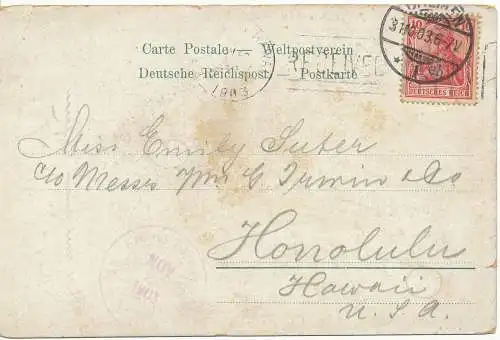 Carte Postale — Weltpostverein
Deutsche Reichspost Postkarte
RECEIVED
1903
BREMEN
31.10.03.6-7V.
* 1 *
10
DEUTSCHES REICH
Miss Emily Suter
c/o Messrs Wm G. Irwin & Co
Honolulu
Hawaii
U. S. A.
NOV
1903